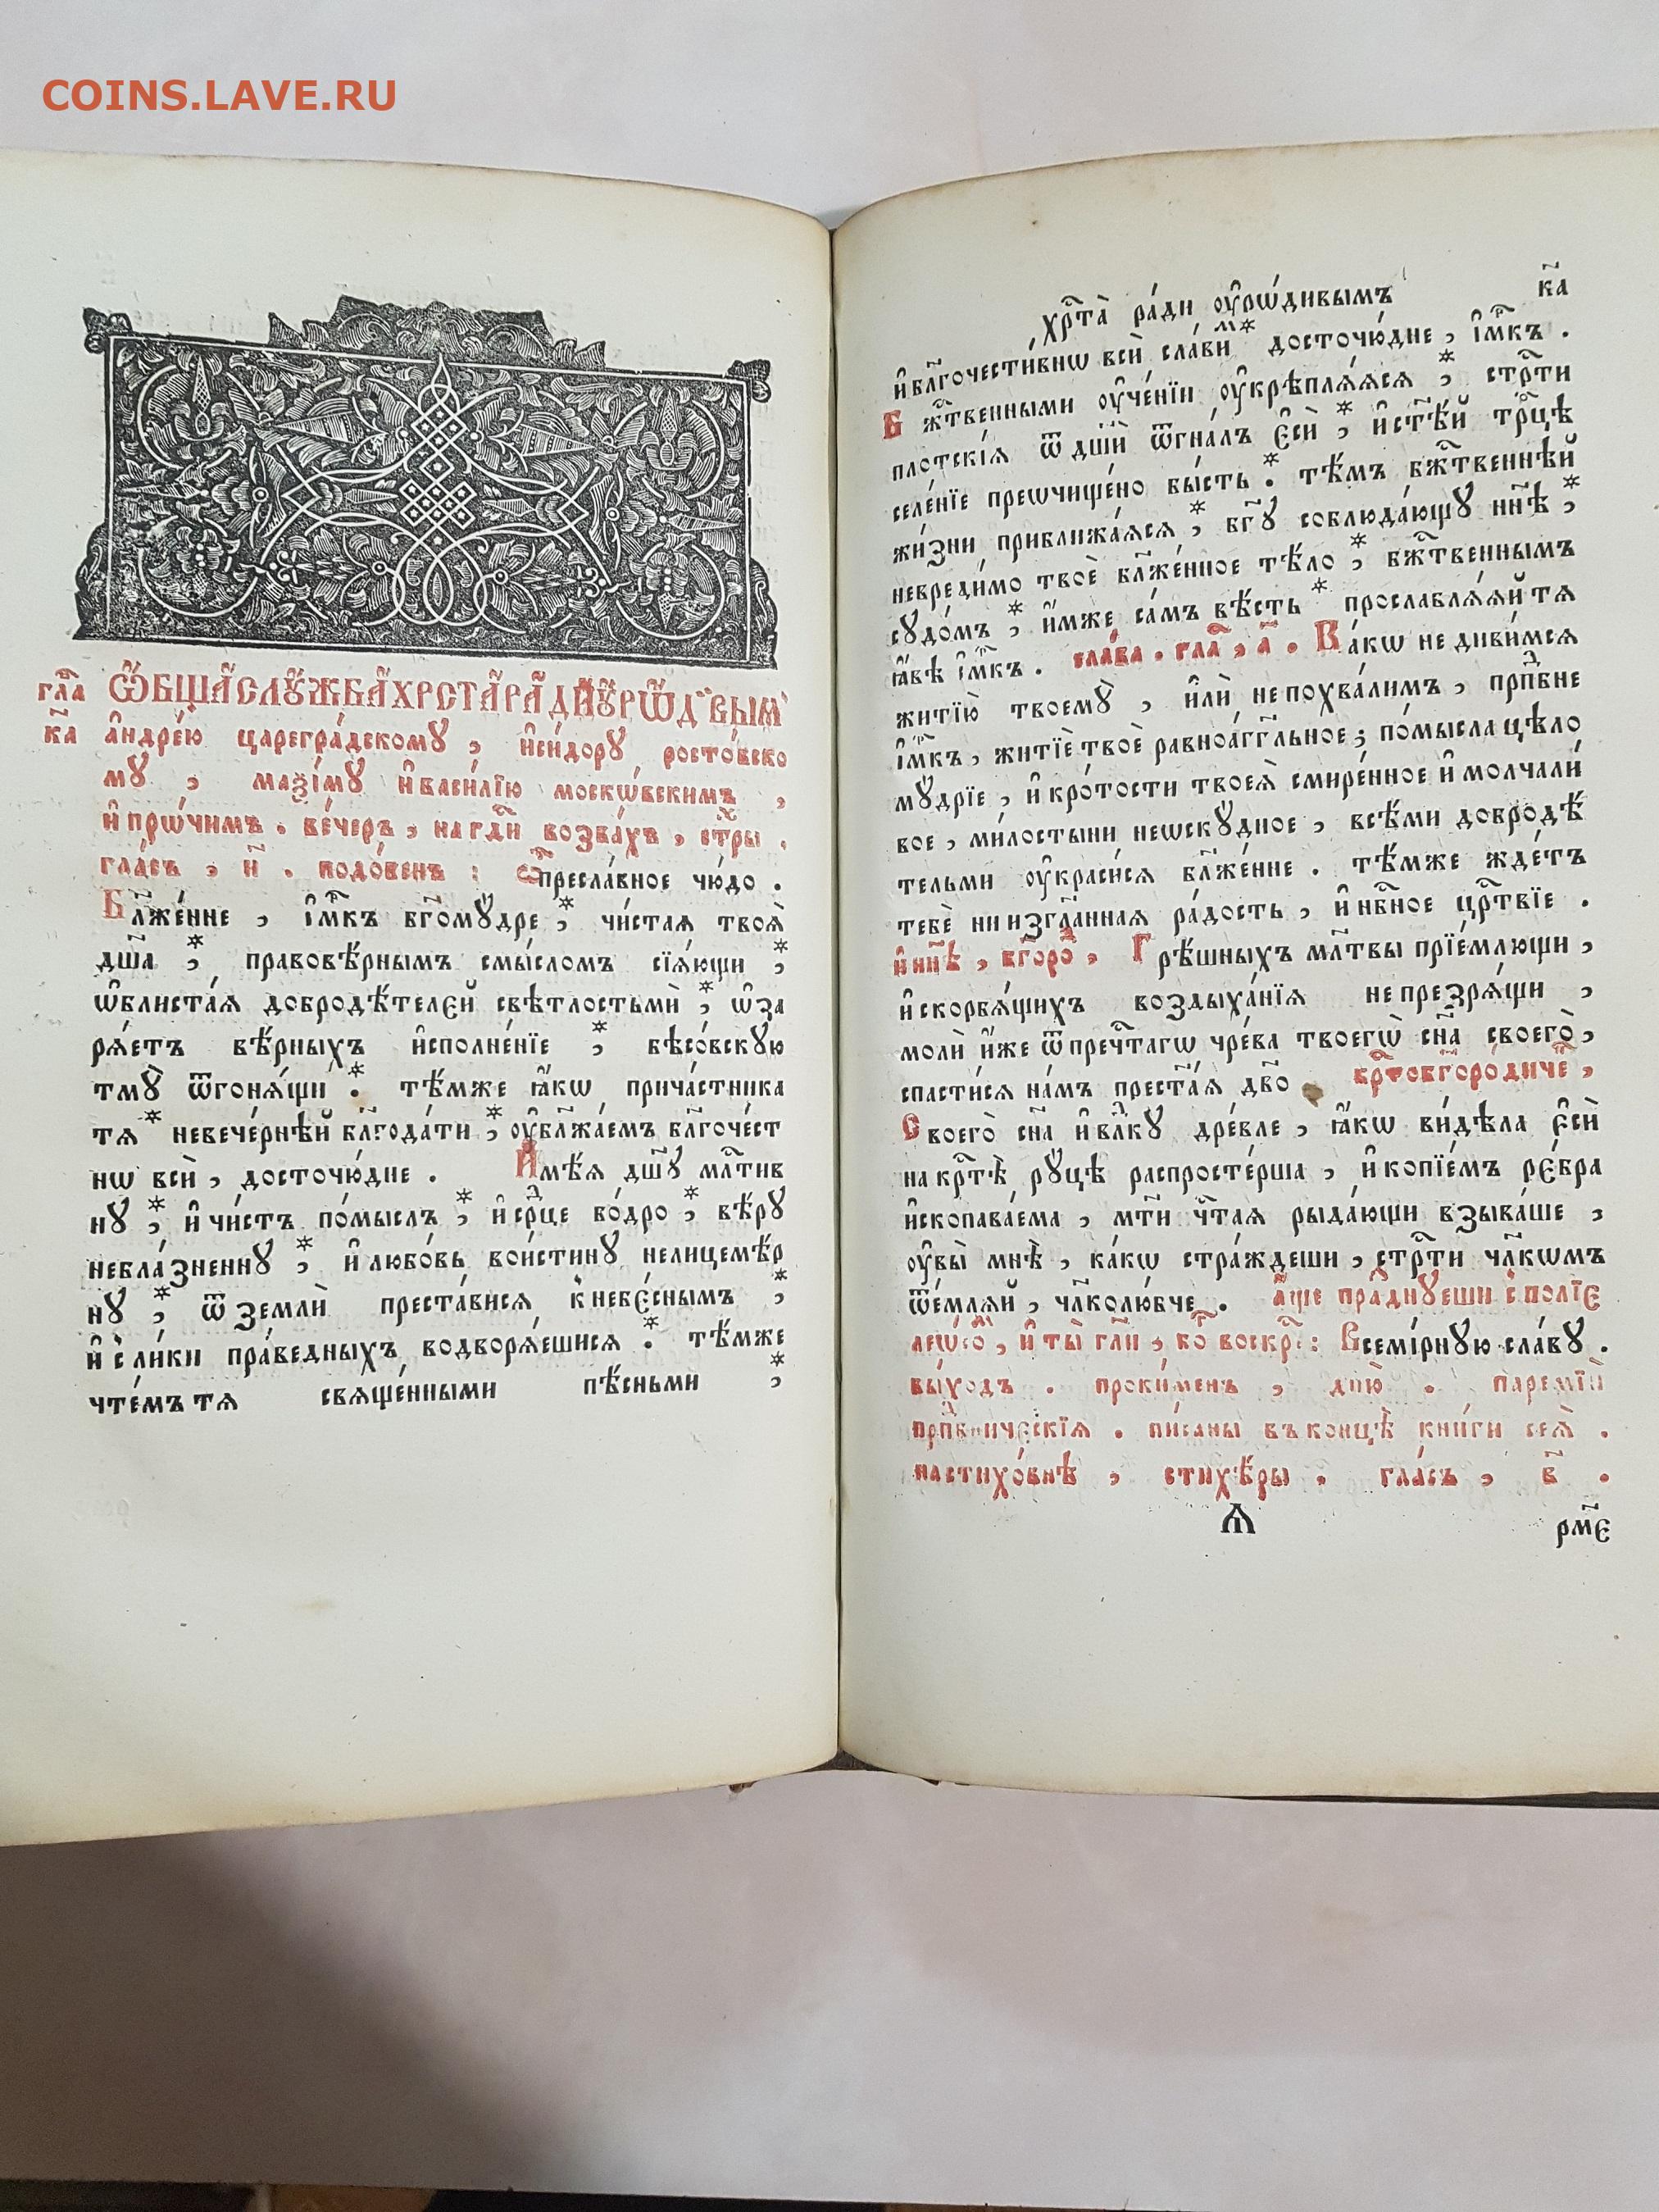 COINS.LAVE.RU
гла҃
ка҃
Ѡ҆бщаѧ слꙋжба хрста ради ꙋ҆рѡдивым
а҆ндре́ю цареграⷣскомꙋ , и҆си́дорꙋ росто́вско
мꙋ , маѯі́мꙋ и҆васи́лїю моско́вскимъ ,
и҆прѡ́чимъ . ве́черъ , на гдⷭ҇и возва́хъ , стⷯры .
гла́съ , и҃ . подо́бенъ : Ѽ преславное чю́до .
Бл҃же́нне , і҆мⷬ҇къ бг҃омꙋ́дре * , чи́стаѧ твоѧ̀
дш҃а * , правовѣ́рнымъ смы́сломъ сїѧ́ющи * ,
ѡ҆блиста́ѧ доброде́телей свѣ́тлостьмѝ * , ѡ҆за
рѧ́етъ вѣ́рныхъ и҆сполне́нїе * , бѣсо́вскꙋю
тмꙋ̀ ѿгонѧ́щи * . тѣ́мже ꙗ҆́кѡ прича́стника
тѧ * невече́рнѣй бл҃года́ти * , оу҆бл҃жа́емъ бл҃гоче́ст
нѡ всѝ , досточю́дне . И҆мѣ́ѧ дш҃ꙋ млⷭ҇тив
нꙋ * , и҆ чи́стъ по́мыслъ * , и҆ срⷣце бо́дро * , вѣ́рꙋ
небла́зненнꙋ * , и҆ любо́вь вои́стинꙋ нелицемѣ́р
нꙋ * , ѿ землѝ преста́висѧ к небе́снымъ * ,
и҆ с ли́ки пра́ведныхъ водворѧ́ешисѧ * . тѣ́мже
чте́мъ тѧ свѧще́нными пѣ́сньми * ,
хрⷭ҇та̀ ра́ди оу҆рѡ́дивымъ ка҃
и҆ бл҃гочести́внѡ всѝ сла́вимⷨ * досточю́дне , і҆мⷬ҇къ .
Бжⷭ҇твенными оу҆че́нїи оу҆крѣплѧ́ѧсѧ * , стрⷭ҇ти
плотскі́ѧ ѿ дш҃ѝ ѿгна́лъ є҆сѝ * , и҆ ст҃ѣ́й трⷪ҇цѣ
селе́нїе преѡчище́но бы́сть * . тѣ́мъ бжⷭ҇твеннѣй
жи́зни приближа́ѧсѧ * , бг҃ꙋ соблюда́ющꙋ нн҃ѣ * ,
невреди́мо твоѐ бл҃же́нное тѣ́ло * , бжⷭ҇твеннымъ
сꙋдо́мъ * , и҆́мже са́мъ вѣ́сть * прославлѧ́ѧй тѧ
ꙗ҆́вѣ і҆мⷬ҇къ . сла́ва . глаⷭ҇ , а҃ . Ка́кѡ не диви́мсѧ
житїю̀ твоемꙋ̀ , и҆лѝ не похва́лимъ , прпⷣбне
і҆мⷬ҇къ , житїѐ твоѐ равноа́гг҃льное ; по́мысла цѣ́ло
мꙋ́дрїе , и҆ кро́тости твоеѧ̀ смире́нное и҆ молчали́
вое , ми́лостыни неѡскꙋ́дное , всѣ́ми доброде́
тельми оу҆краси́сѧ бл҃же́нне . тѣ́мже жде́тъ
тебѐ ни изгла́нная ра́дость , и҆ нбⷭ҇ное црⷭ҇твїе .
и҆ нн҃ѣ , бг҃оро́ⷣ , Грѣ́шныхъ мл҃твы прїе́млющи ,
и҆ скорбѧ́щихъ воздыха́нїѧ не презрѧ́щи ,
молѝ и҆́же ѿ пречⷭ҇тагѡ чре́ва твоегѡ̀ сн҃а своего̀ ,
спасти́сѧ на́мъ преста́ѧ дв҃о . крⷭ҇тобг҃оро́диче҃ ,
Своего̀ сн҃а и҆ влⷣкꙋ дре́вле , ꙗ҆́кѡ ви́дѣла є҆сѝ
на крⷭ҇тѣ̀ рꙋ́цѣ распросте́рша , и҆ копїе́мъ ре́бра
и҆скопава́ема , мт҃и чⷭ҇таѧ рыда́ющи взыва́ше ,
оу҆вы̀ мнѣ̀ , ка́кѡ стра́ждеши , стрⷭ҇ти чл҃кѡмъ
ѿе́млѧй , чл҃колю́бче . а҆́ще пра́днꙋеши с поліе
леѡсоⷨ , и҆ ты̀ гл҃и , коⷣ воскрⷭ҇ : Всемі́рнꙋю сла́вꙋ .
вы́ходъ . проки́менъ , дню̀ . паремі́й
прпⷣбническїѧ . пи́саны въ концѣ̀ кни́ги сеѧ̀ .
на стихо́внѣ , стихе́ры . гла́съ , в҃ .
Ѧ рм҃є